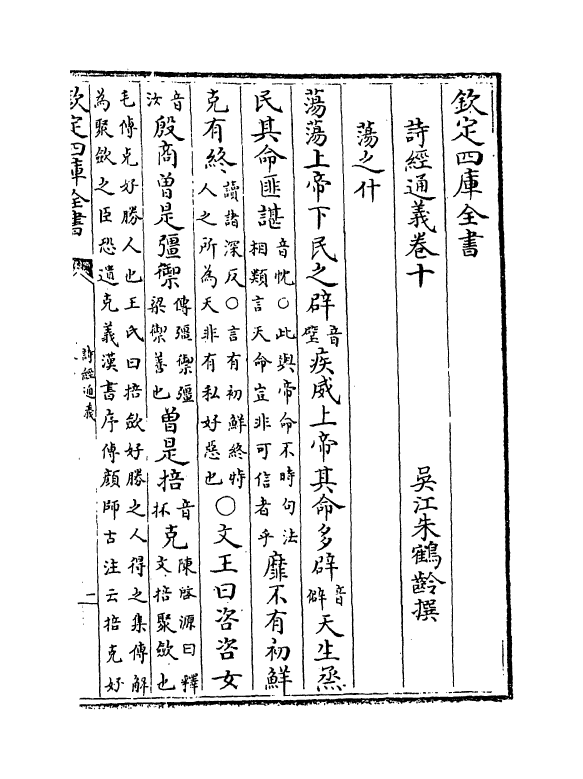 欽定四庫全書
詩經通義卷十
吳江朱鶴齡撰
蕩之什
蕩蕩上帝下民之辟音璧疾威上帝其命多辟音僻天生烝
民其命匪諶音忱○此與帝命不時句法相類言天命豈非可信者乎靡不有初鮮
克有終讀諸深反○言有初鮮終特人之所為天非有私好惡也○文王曰咨咨女
音汝殷商曾是彊禦傳彊禦彊梁禦善也曾是掊音抔克陳啓源曰釋文掊聚斂也
毛傳克好勝人也王氏曰掊斂好勝之人得之集傳解
為聚斂之臣恐遺克義漢書序傳顏師古注云掊克好
欽定四庫全書
詩經通義
一